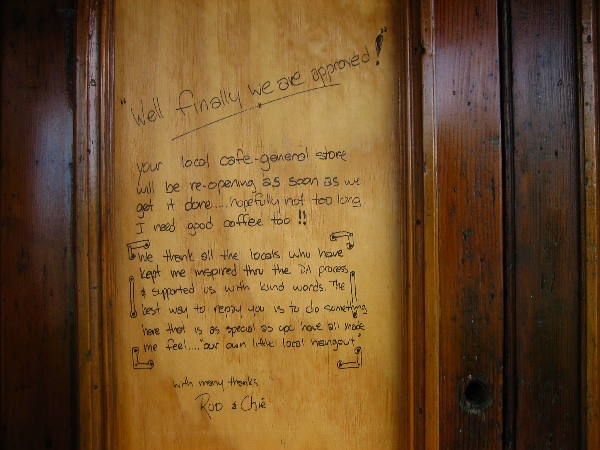 "Well finally we are approved!"
your local cafe-general store
will be re-opening as soon as we
get it done....hopefully not too long
I need good coffee too !!
We thank all the locals who have
kept me inspired thru the DA process
& supported us with kind words. The
best way to repay you is to do something
here that is as special as you have all made
me feel...."our own little local hangout"
with many thanks
Rod & Chié